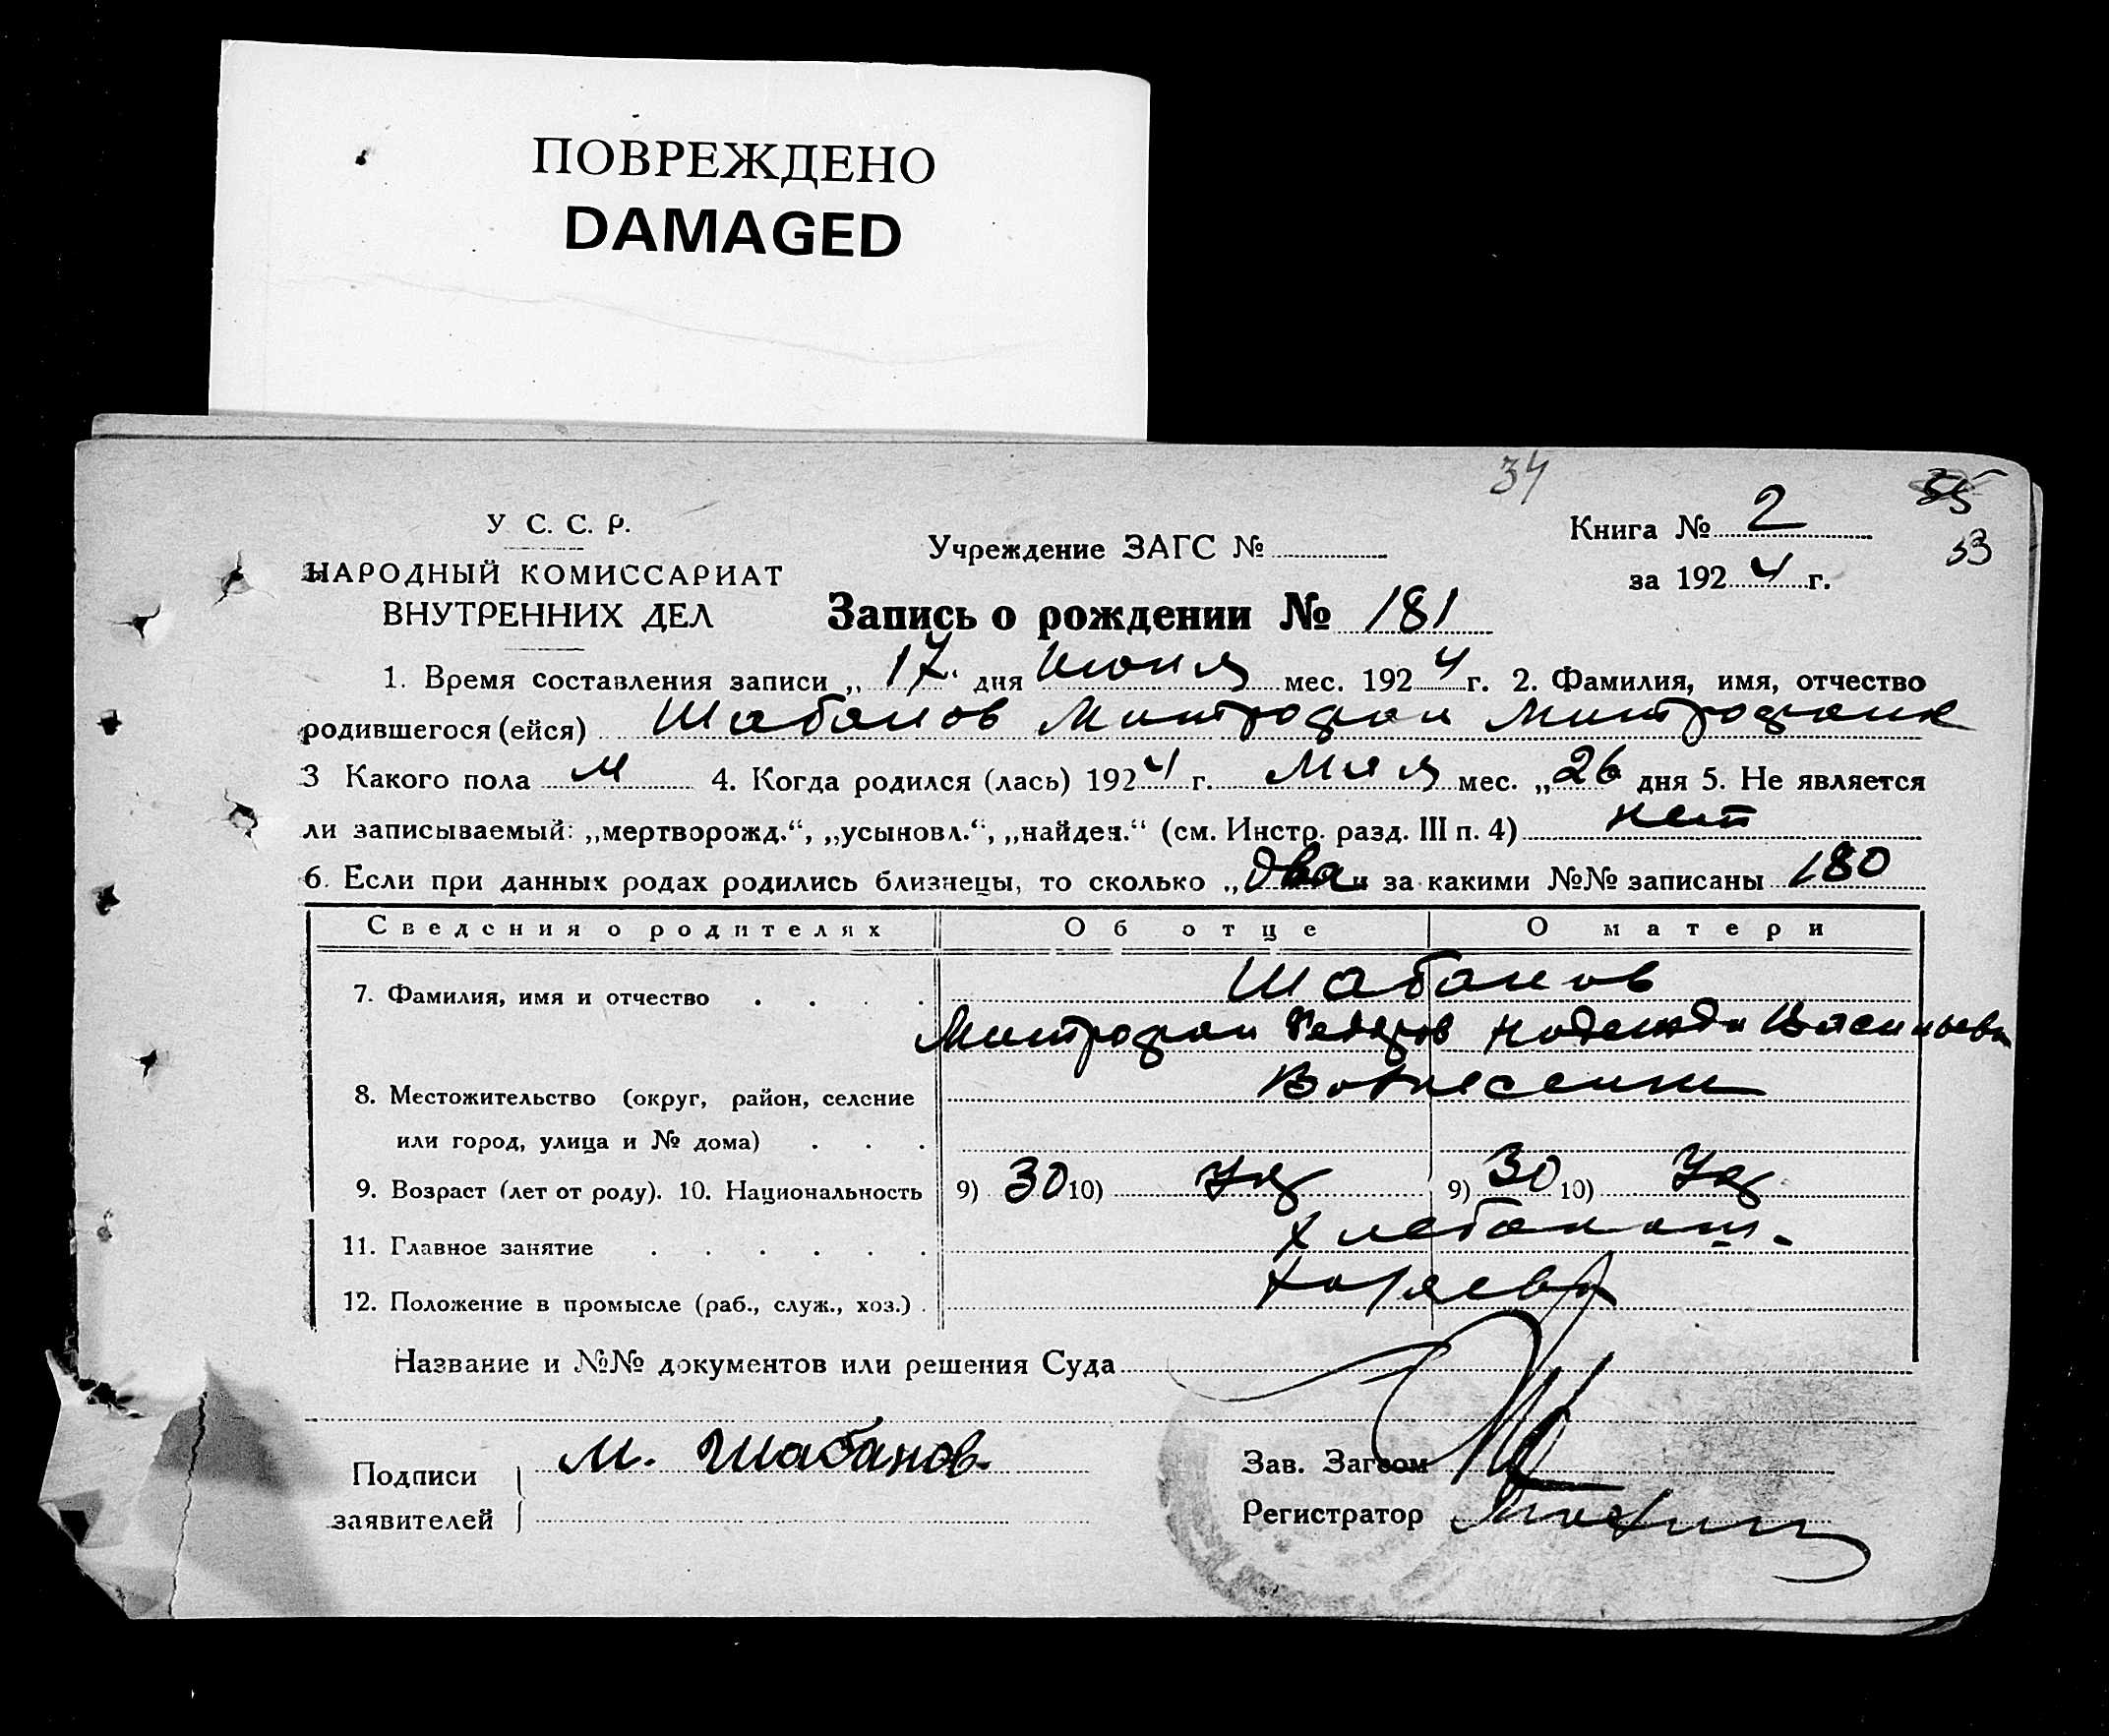 ПОВРЕЖДЕНО
DAMAGED
34
35
У С. С. Р.
Книга № 2
Учреждение ЗАГС №
33
НАРОДНЫЙ КОМИССАРИАТ
за 1924 г.
ВНУТРЕННИХ ДЕЛ
Запись о рождении № 181
1. Время составления записи „ 17 " дня Июня мес. 1924 г. 2. Фамилия, имя, отчество
родившегося (ейся) Шабанов Митрофан Митрофанов
3 Какого пола м 4. Когда родился (лась) 1924 г. Мая мес. „ 26 дня 5. Не является
ли записываемый: „мертворожд.“, „усыновл.“, „найден.“ (см. Инстр. разд. III п. 4) нет
6. Если при данных родах родились близнецы, то сколько „ два и за какими №№ записаны 180
Сведения о родителях Об отце О матери
7. Фамилия, имя и отчество Шабанов
Митрофан Федоров Надежда Васильева
8. Местожительство (округ, район, селение Вознесенка
или город, улица и № дома)
9. Возраст (лет от роду). 10. Национальность 9) 30 10) Ук 9) 30 10) Ук
11. Главное занятие Хлебопаш.
12. Положение в промысле (раб., служ., хоз.) хозяева
Название и №№ документов или решения Суда
Подписи М. Шабанов
заявителей
Зав. Загсом
Регистратор